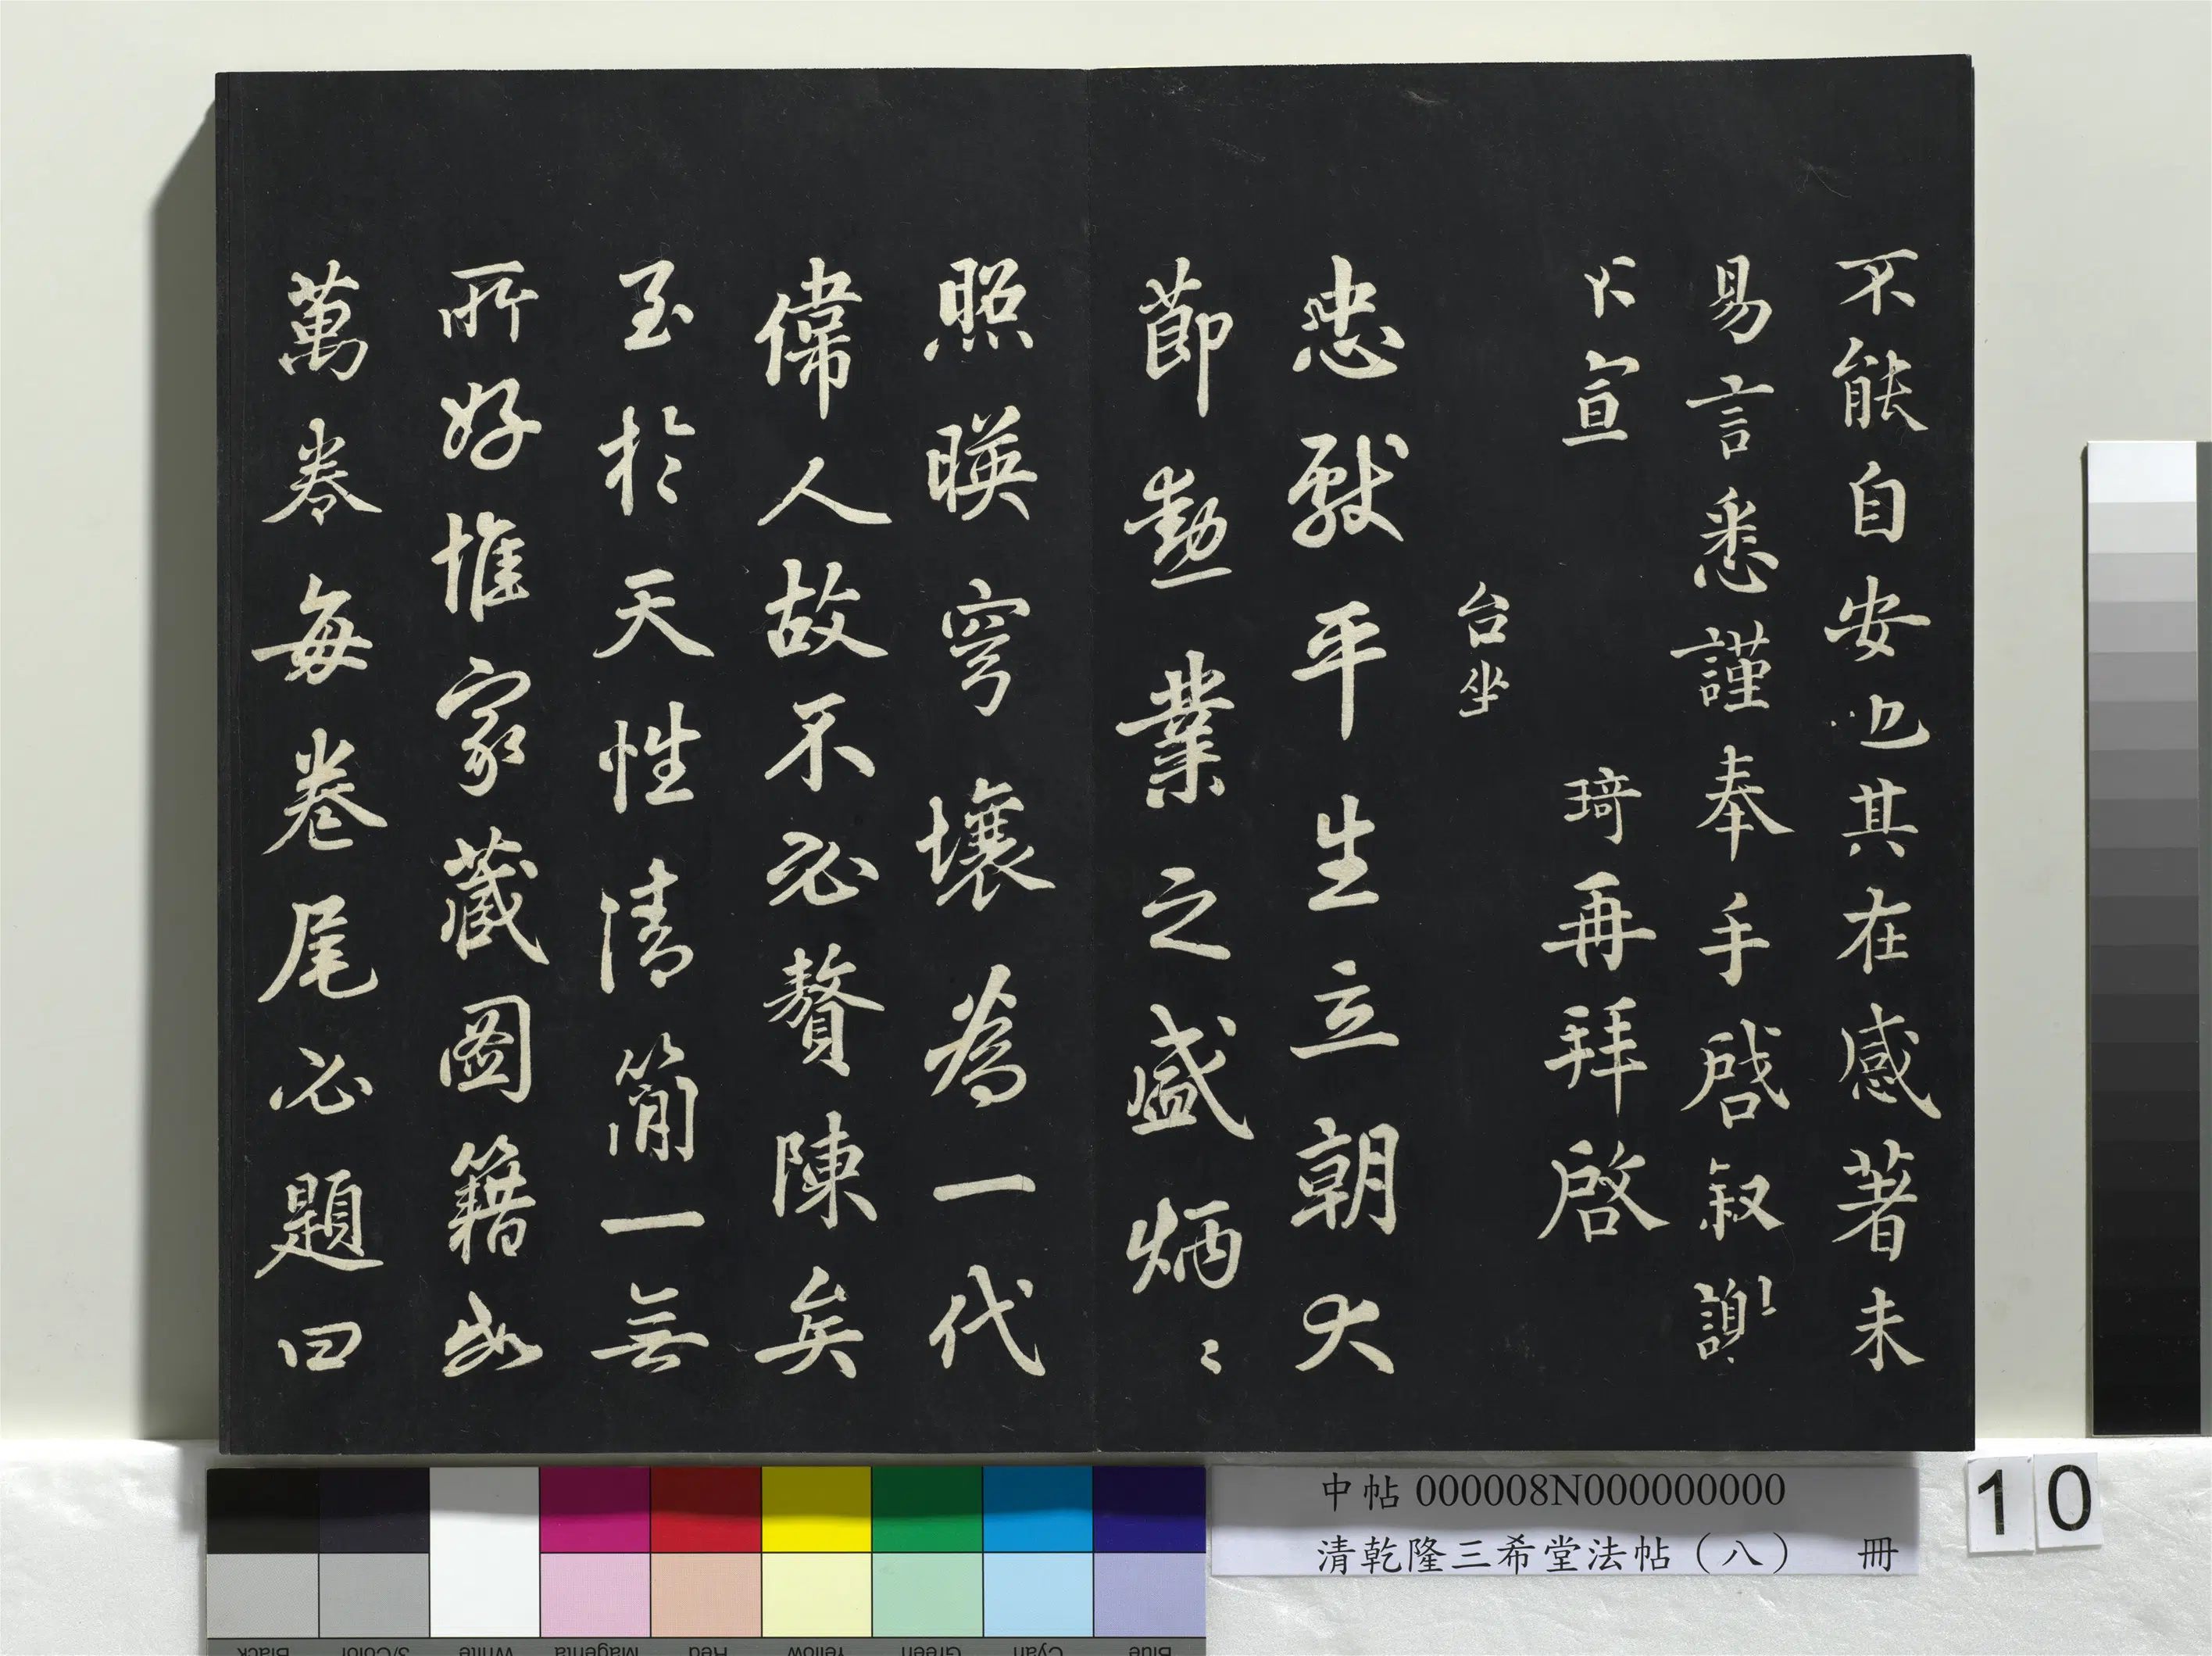 不能自安也其在感著未
易言悉謹奉手啓叙謝
不宣 琦再拜啓
台坐
忠獻平生立朝大
節勳業之盛炳〻
照暎穹壤為一代
偉人故不必贅陳矣
至於天性清簡一無
所好惟家藏圖籍
萬卷每卷尾必題曰
中帖 000008N000000000
清乾隆三希堂法帖（八） 冊
10
Blue Cyan Green Yellow Red Magenta White 3/Color Black